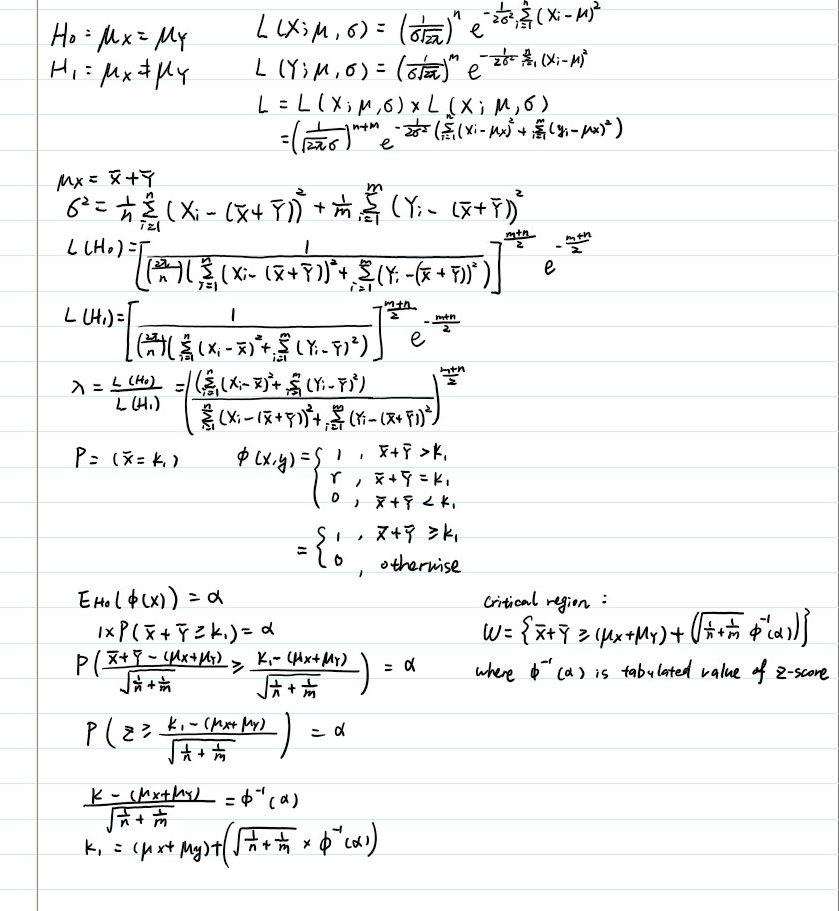 H₀ : μx = μY
H₁ : μx ≠ μY
L(X; μ, σ) = (1/(σ√2π))ⁿ e^(-1/(2σ²) Σ_{i=1}^{n} (Xi - μ)²)
L(Y; μ, σ) = (1/(σ√2π))^m e^(-1/(2σ²) Σ_{i=1}^{n} (Xi - μ)²)
L = L(X; μ, σ) × L(X; μ, σ)
= (1/(√2π σ))^(n+m) e^(-1/(2σ²) (Σ_{i=1}^{n} (Xi - μx)² + Σ_{i=1}^{m} (yi - μx)²))
μx = X̄ + Ȳ
σ² = 1/n Σ_{i=1}^{n} (Xi - (X̄ + Ȳ))² + 1/m Σ_{i=1}^{m} (Yi - (X̄ + Ȳ))²
L(H₀) = [1 / ((2π/n)(Σ_{i=1}^{n} (Xi - (X̄ + Ȳ))² + Σ_{i=1}^{m} (Yi - (X̄ + Ȳ))²))]^((m+n)/2) e^(-(m+n)/2)
L(H₁) = [1 / ((2π/n)(Σ_{i=1}^{n} (Xi - X̄)² + Σ_{i=1}^{m} (Yi - Ȳ)²))]^((m+n)/2) e^(-(m+n)/2)
λ = L(H₀)/L(H₁) = ((Σ_{i=1}^{n} (Xi - X̄)² + Σ_{i=1}^{m} (Yi - Ȳ)²) / (Σ_{i=1}^{n} (Xi - (X̄ + Ȳ))² + Σ_{i=1}^{m} (Yi - (X̄ + Ȳ))²))^((m+n)/2)
P = (X̄ = k₁)
ϕ(x,y) = { 1 , X̄ + Ȳ > k₁
r , X̄ + Ȳ = k₁
0 , X̄ + Ȳ < k₁
= { 1 , X̄ + Ȳ ≥ k₁
0 , otherwise
E_H₀(ϕ(X)) = α
1×P(X̄ + Ȳ ≥ k₁) = α
P((X̄ + Ȳ - (μx + μY))/√(1/n + 1/m) ≥ (k₁ - (μx + μY))/√(1/n + 1/m)) = α
P(z ≥ (k₁ - (μx + μY))/√(1/n + 1/m)) = α
(k - (μx + μY))/√(1/n + 1/m) = ϕ⁻¹(α)
k₁ = (μx + μy) + (√(1/n + 1/m) × ϕ⁻¹(α))
Critical region :
W = {X̄ + Ȳ ≥ (μx + μY) + (√(1/n + 1/m) ϕ⁻¹(α))}
where ϕ⁻¹(α) is tabulated value of z-score